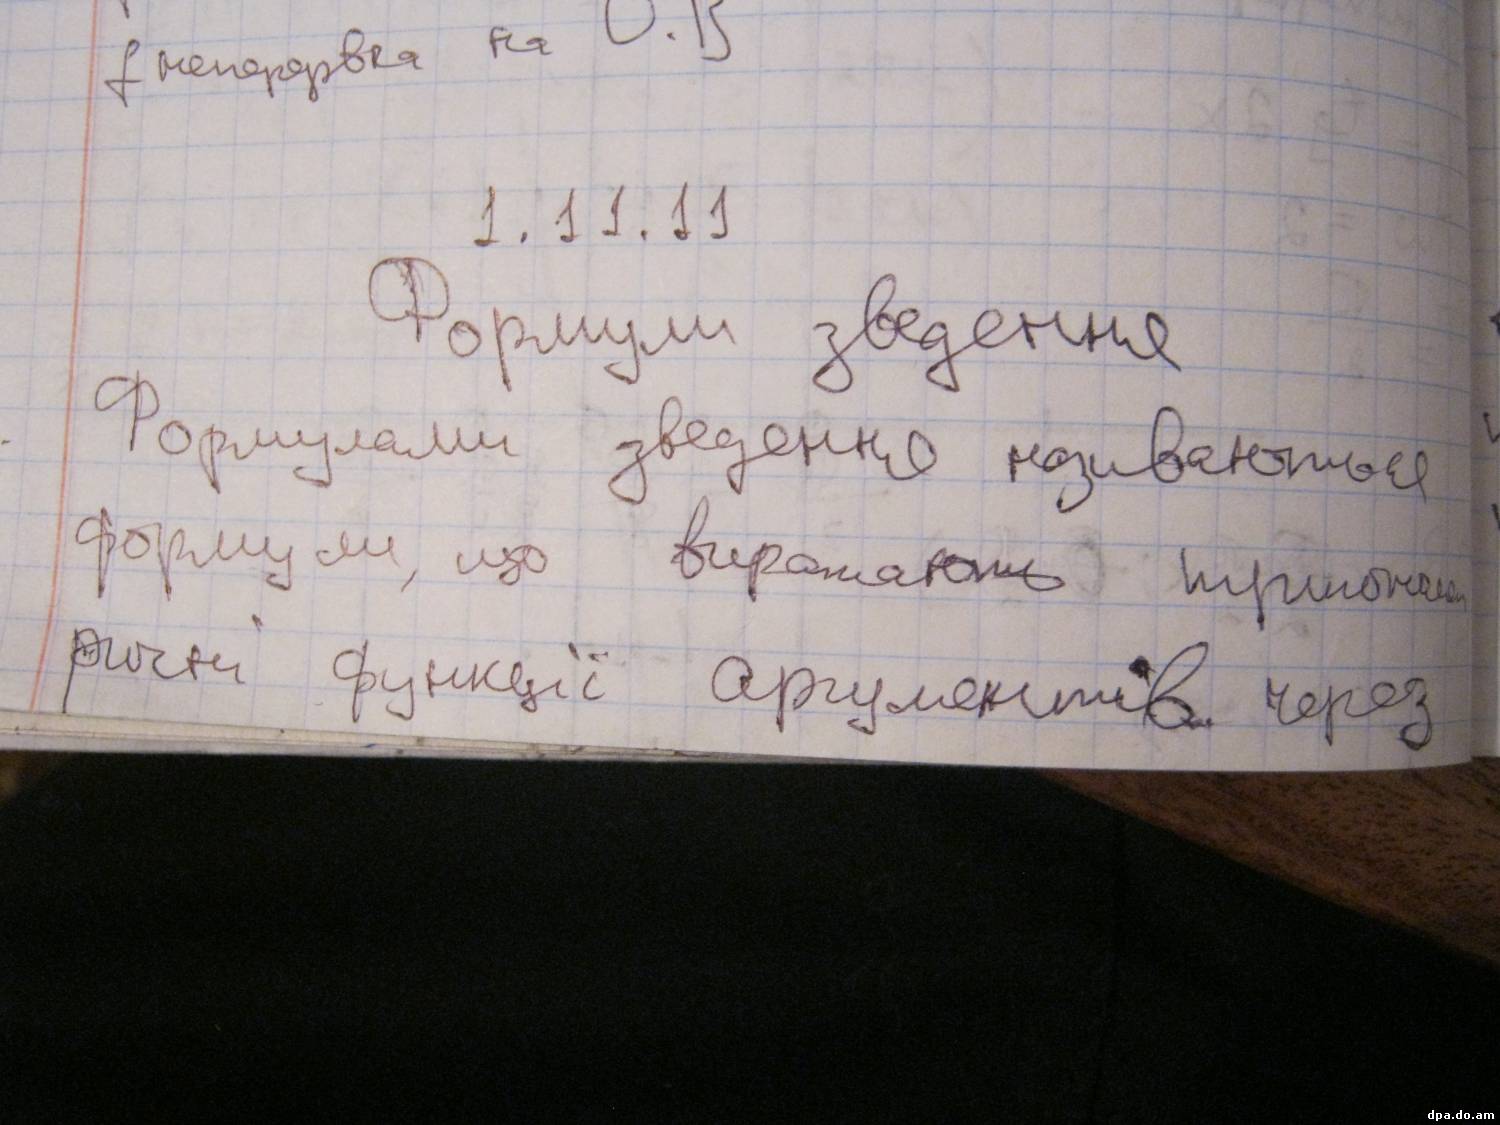 f неперервна на О.В
1.11.11
Формули зведення
Формулами зведення називаються
формули, що виражають
ричні функції аргументів через
dpa.do.am